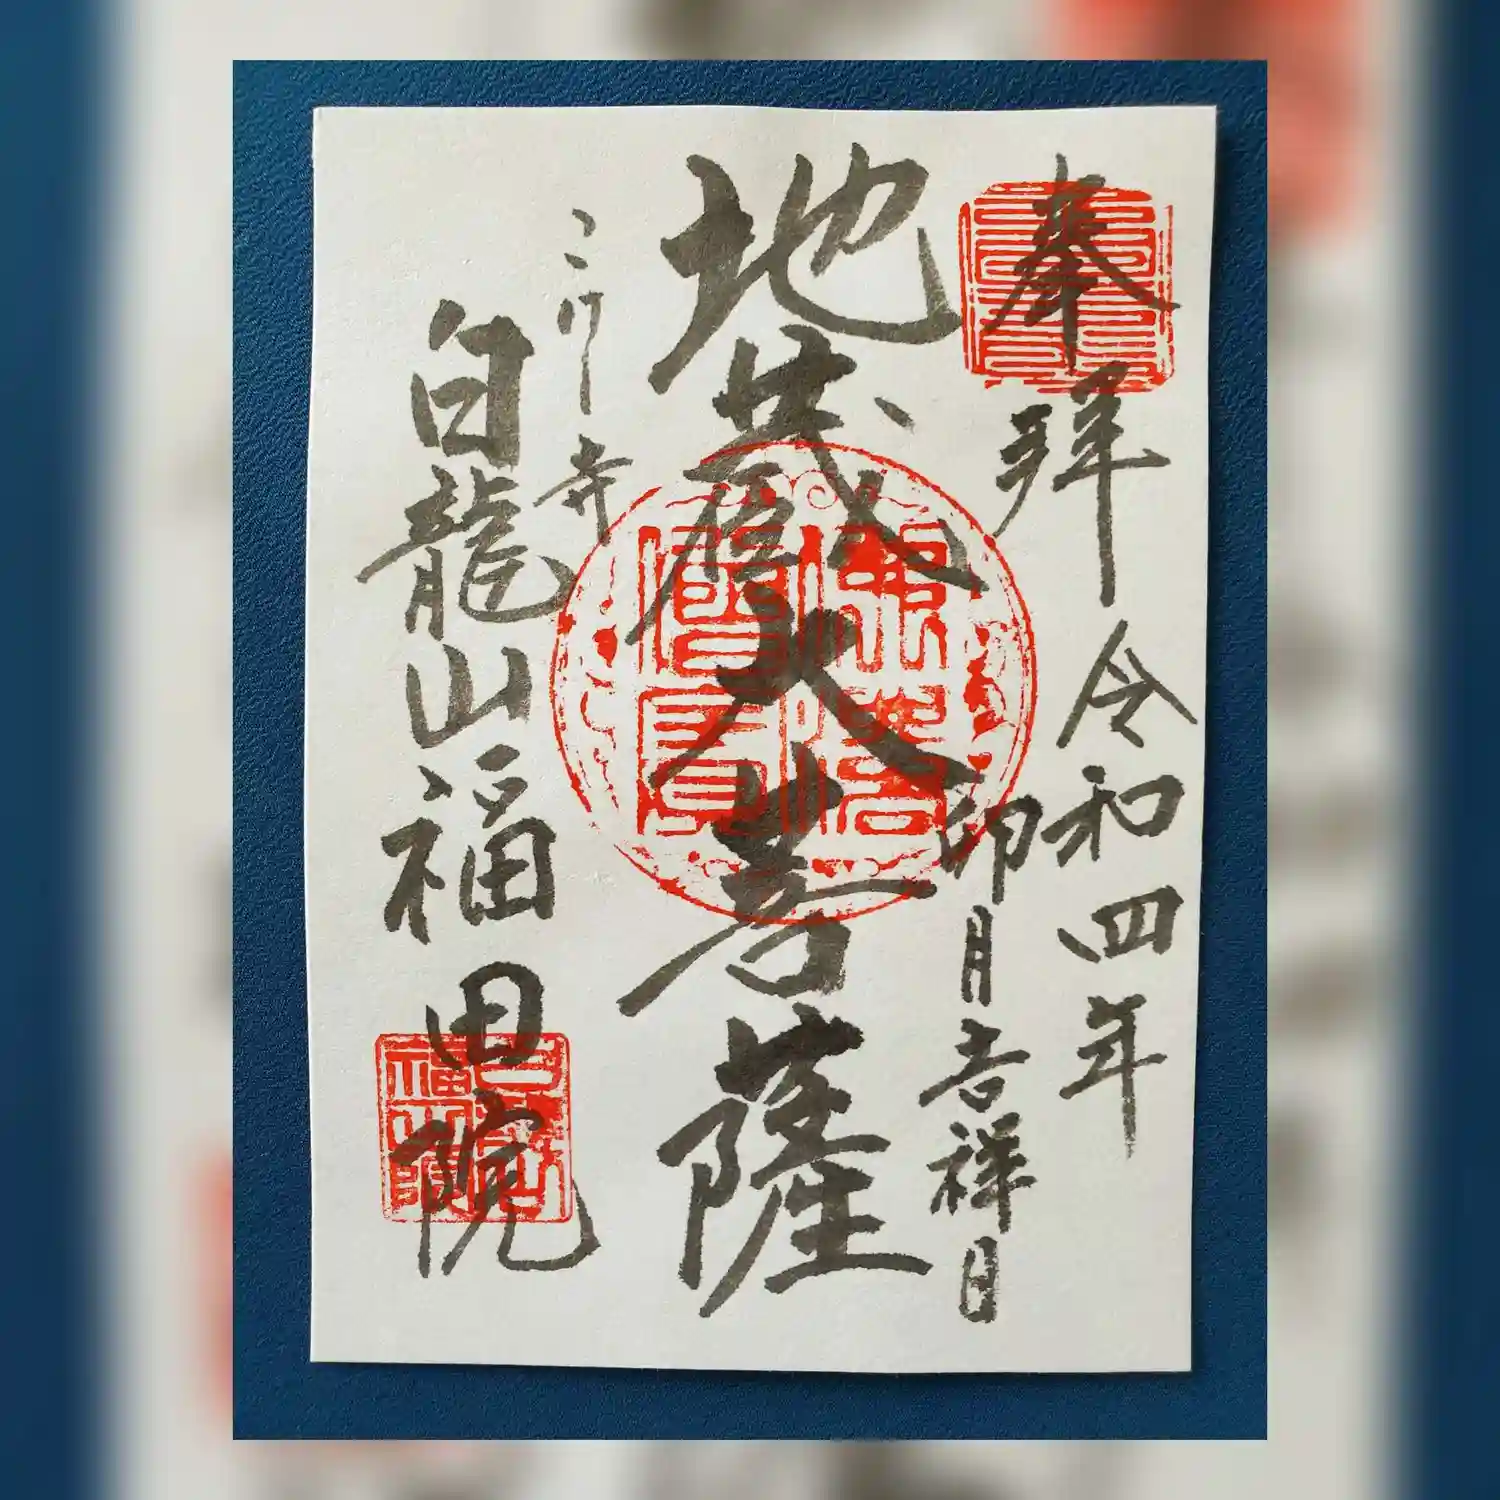 奉拝
令和四年
卯月吉祥日
地蔵大菩薩
こけ寺
白龍山福田院
佛法僧寶